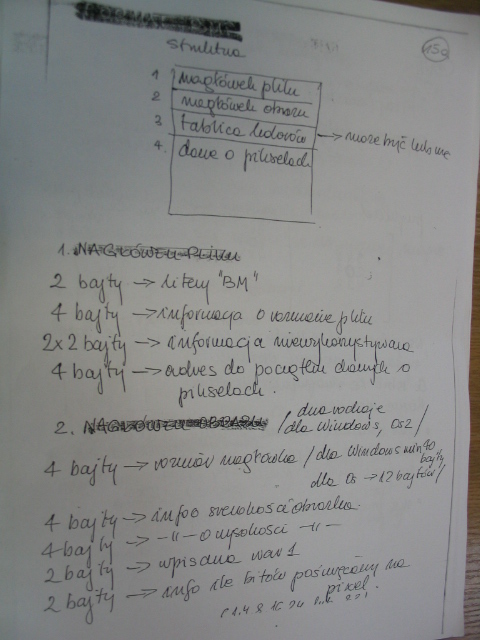 struktura
15a
1 nagłówek pliku
2 nagłówek obrazu
3 tablica kolorów → może być lub nie
4. dane o pikselach
1. NAGŁÓWEK PLIKU
2 bajty → litery "BM"
4 bajty → informacja o rozmiarze pliku
2x2 bajty → informacja niewykorzystywana
4 bajty → adres do początku danych o
pikselach.
2. NAGŁÓWEK OBRAZU / dwa rodzaje
/dla Windows, OS2/
4 bajty → rozmiar nagłówka /dla Windows min 40
bajty,
dla Os → 12 bajtów/
4 bajty → info o szerokości obrazka
4 bajty → -||- o wysokości -||-
2 bajty → wpisana war 1
2 bajty → info ile bitów poświęcamy na
pixel.
1.4 8 16 24